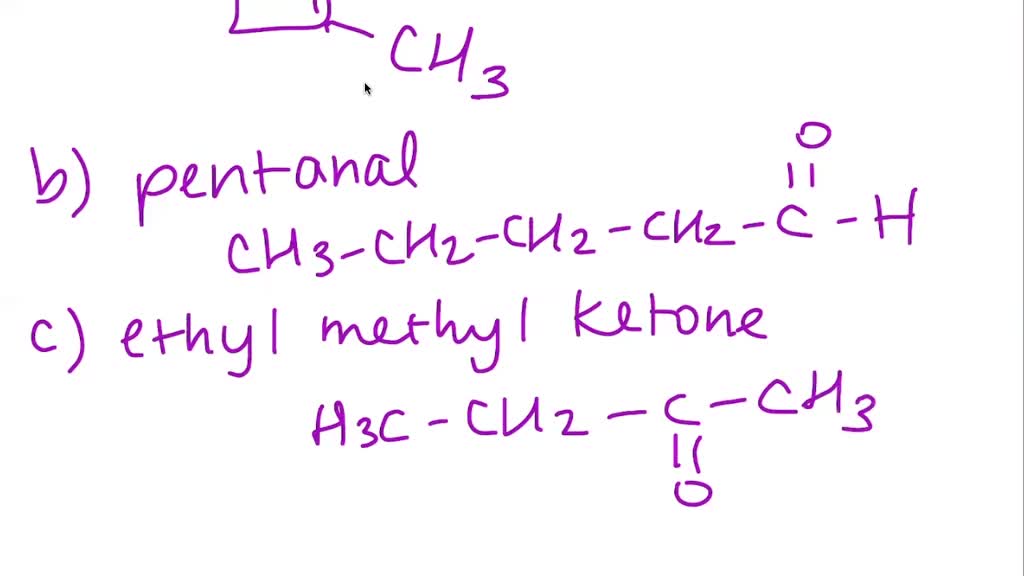 CH3
b) pentanal
O
||
CH3-CH2-CH2-CH2-C-H
c) ethyl methyl ketone
H3C-CH2-C-CH3
||
O